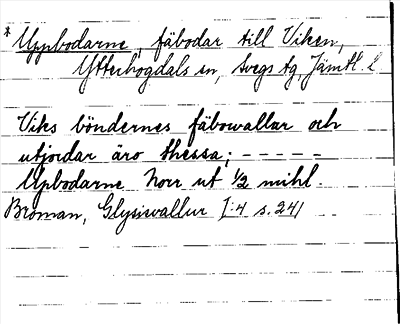 * Uppbodarne, fäbodar till Viken,
Ytterhogdals sn, Svegs tg, Jämtl. l
Viks böndernes fäbowallar och
utjordar äro thessa; - - - - -
Upbodarne Norr ut ½ mihl.
Broman, Glysiswallur I:4 s. 241